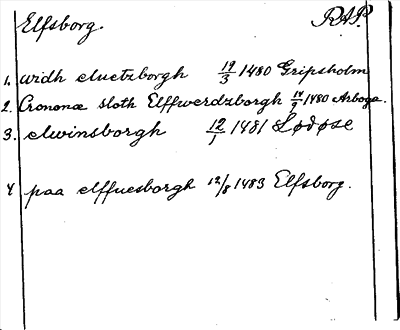 Elfsborg. RAP.
1. widh eluetzborgh 19/3 1480 Gripsholm
2. Crononæ sloth Elffwerdzborgh 14/7 1480 Arboga.
3. elwinsborgh 12/1 1481 Lødøse
4 paa elffuesborgh 12/8 1483 Elfsborg.